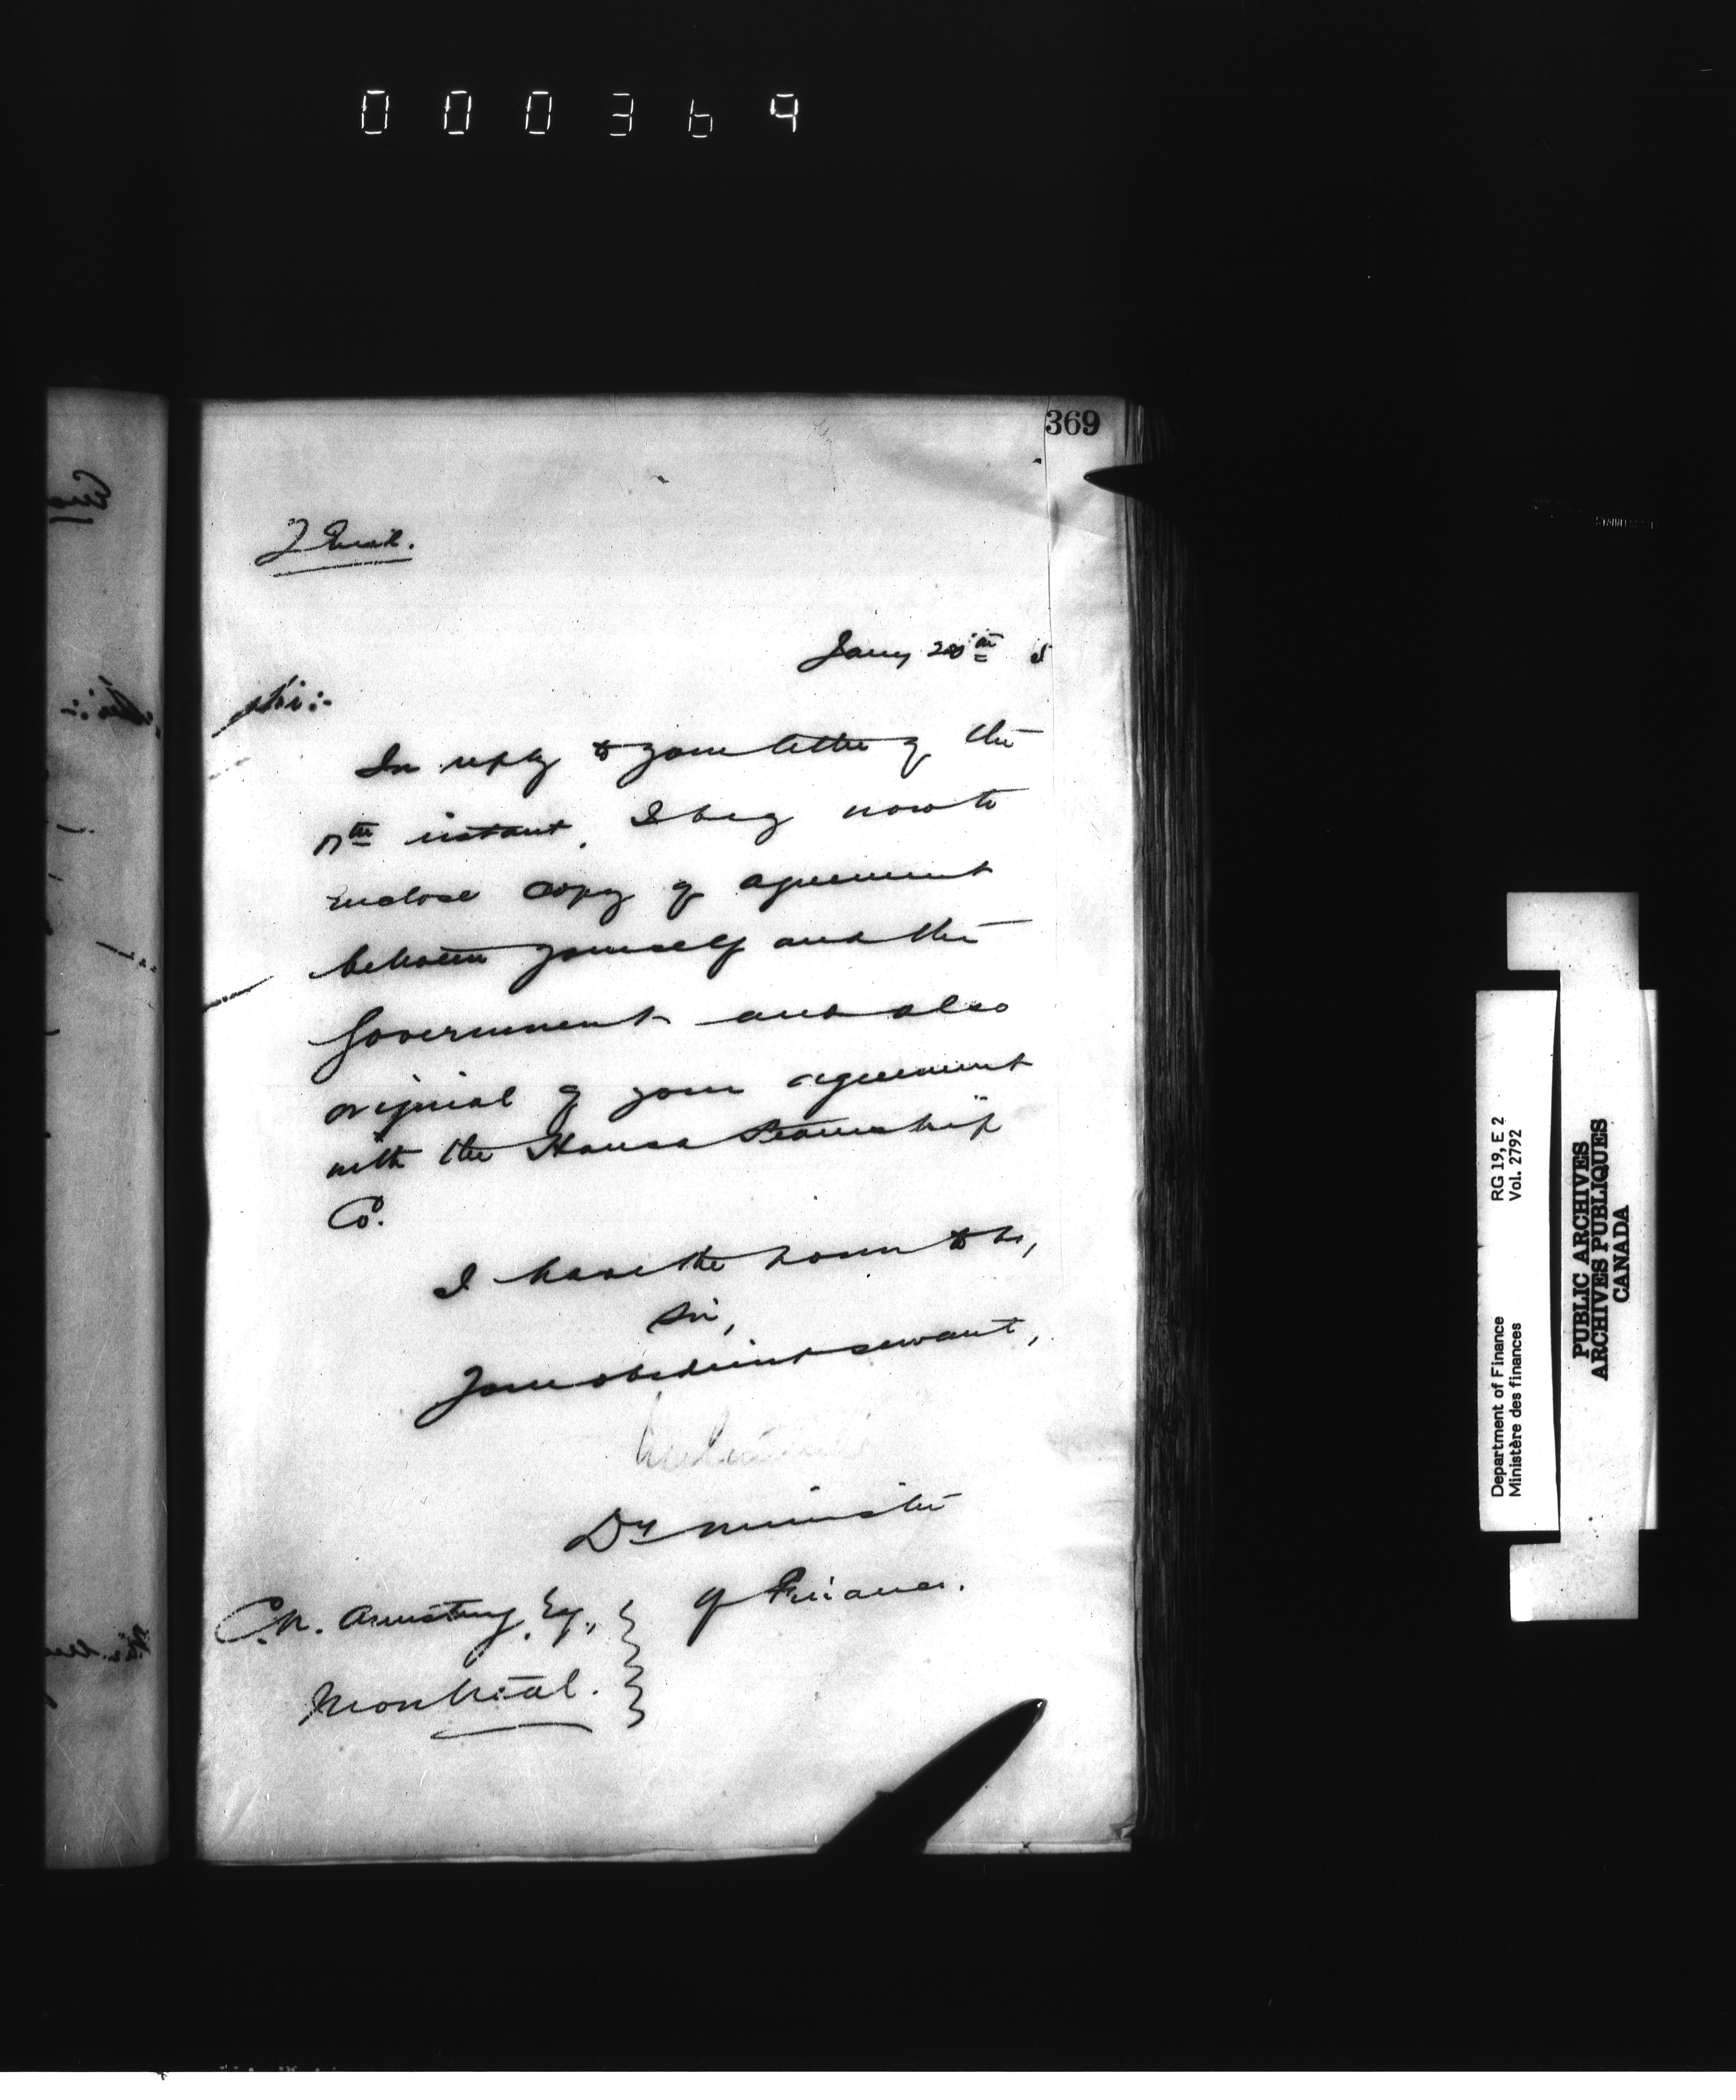 000369
369
2 Encl.
Jany 20th
Sir:-
In reply to your letter of the
17th instant, I beg now to
enclose copy of agreement
between yourself and the
Government and also
original of your agreement
with the Hansa Steamship
Co.
I have the honour to be,
Sir,
Your obedient servant,
Dy Minister
of Finance.
C.N. Armstrong, Esq.,
Montreal.
Department of Finance RG 19, E 2
Ministère des finances Vol. 2792
PUBLIC ARCHIVES
ARCHIVES PUBLIQUES
CANADA